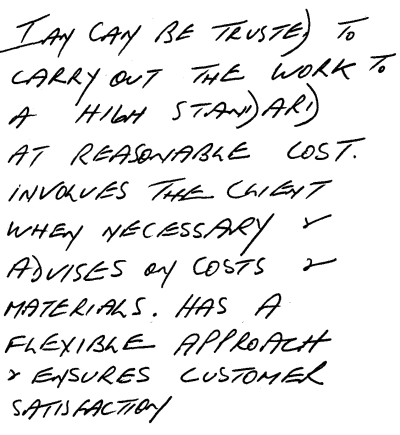 IAN CAN BE TRUSTED TO
CARRY OUT THE WORK TO
A HIGH STANDARD
AT REASONABLE COST.
INVOLVES THE CLIENT
WHEN NECESSARY &
ADVISES ON COSTS &
MATERIALS. HAS A
FLEXIBLE APPROACH
& ENSURES CUSTOMER
SATISFACTION